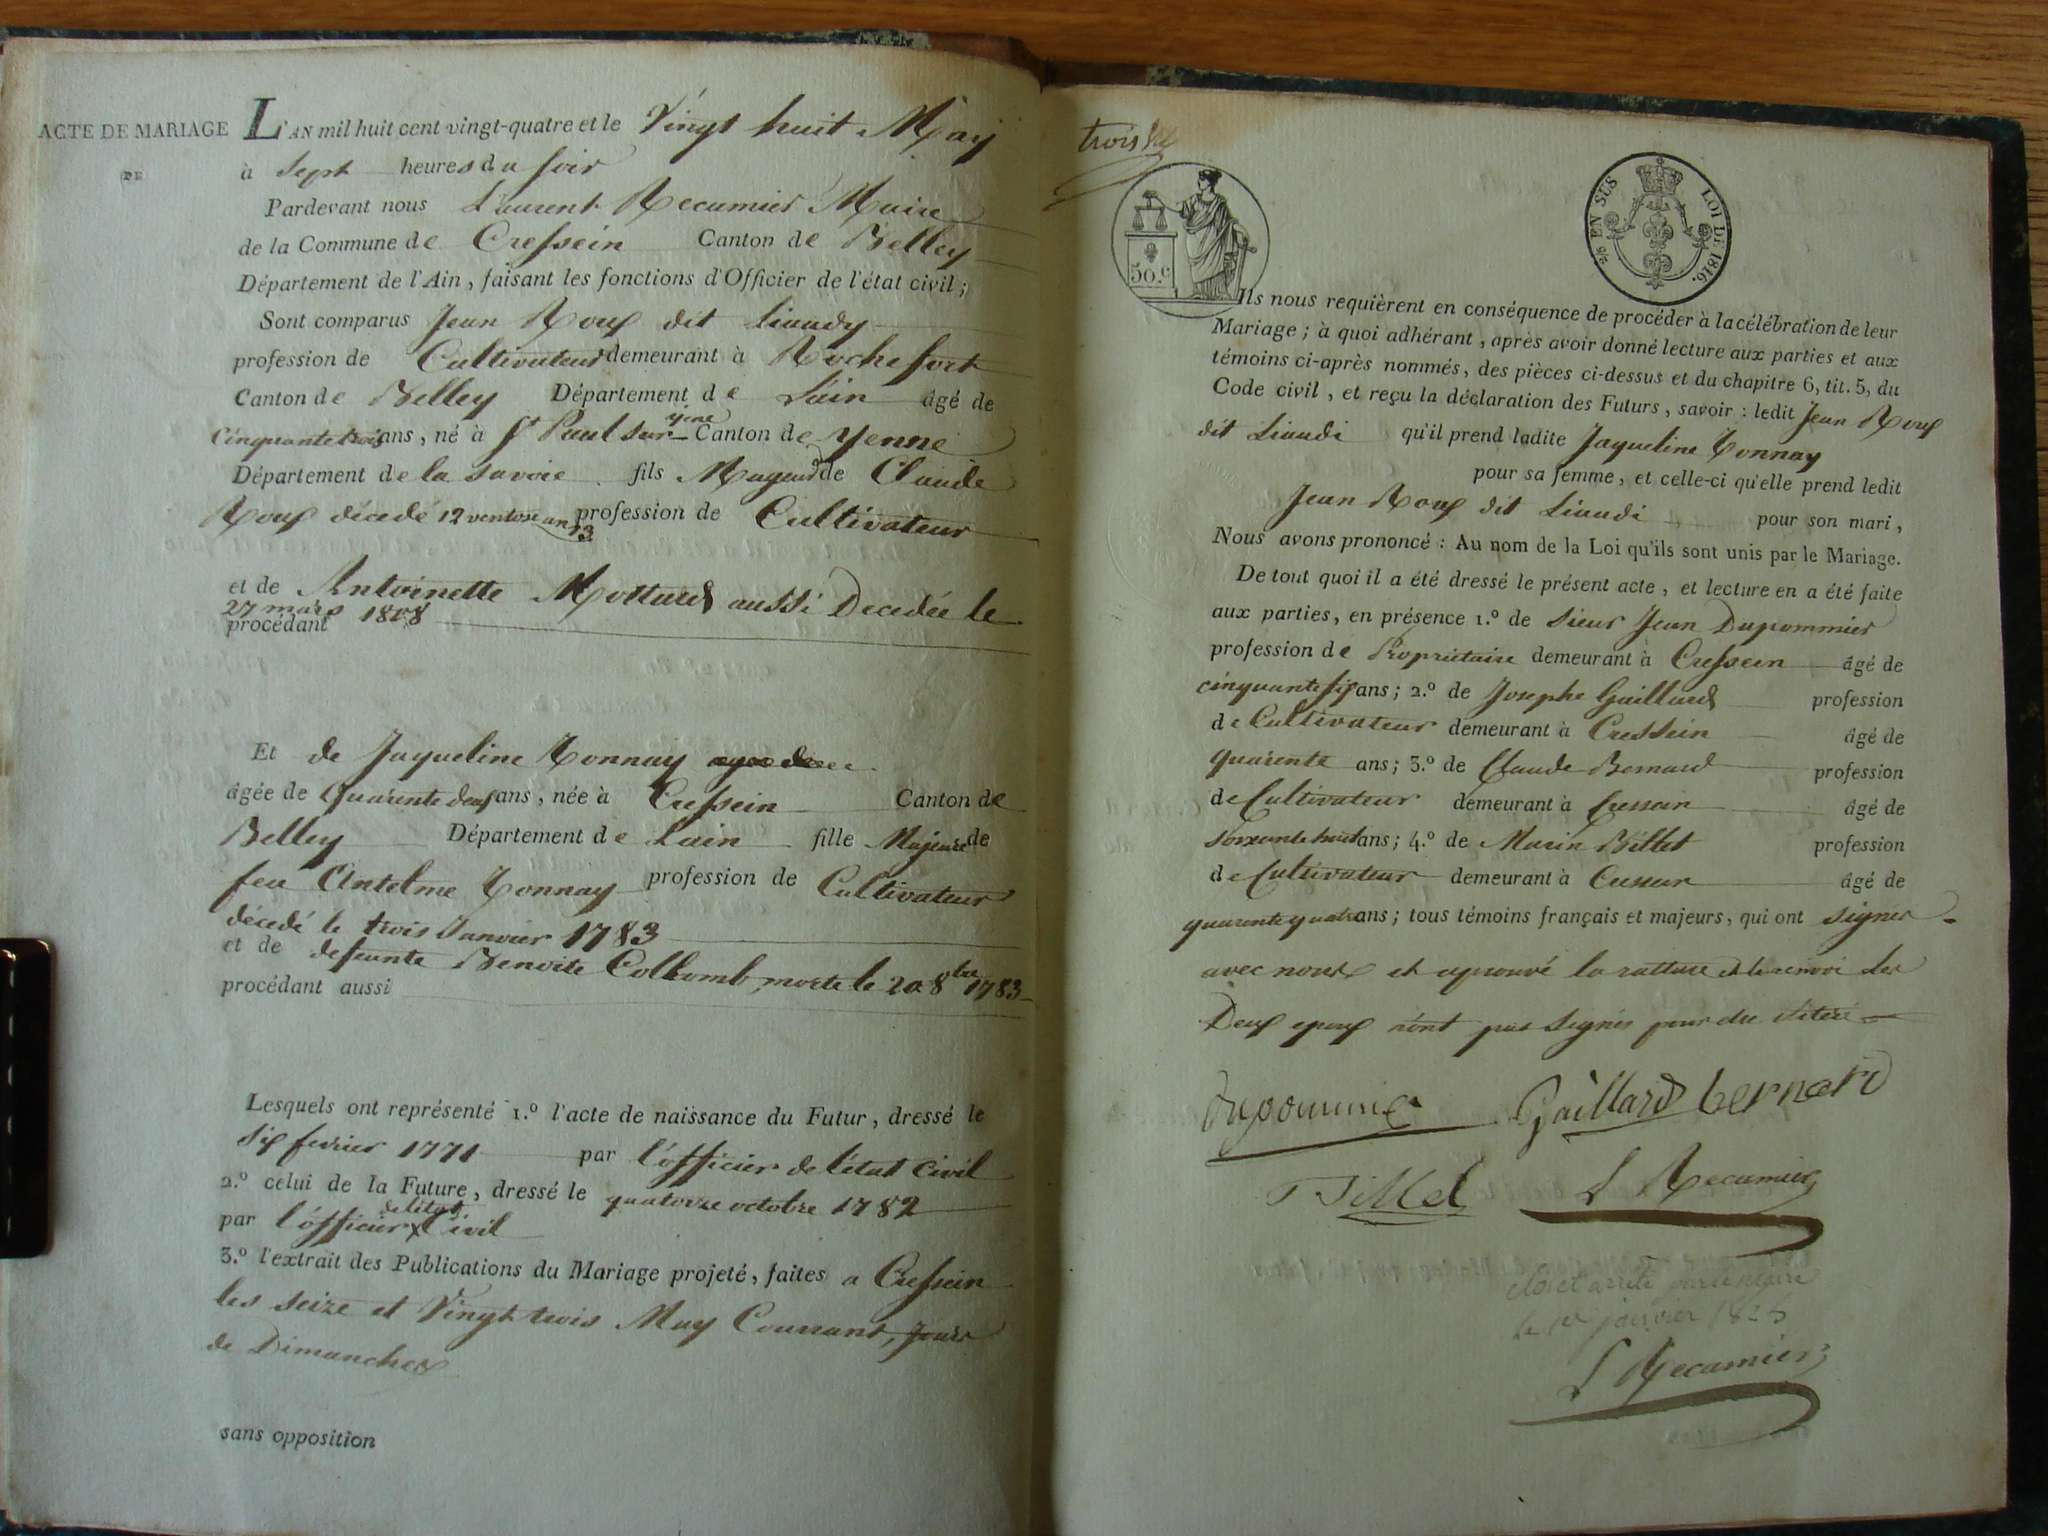 ACTE DE MARIAGE
DE
L'AN mil huit cent vingt-quatre et le Vingt huit May
à Sept heures du soir
Pardevant nous Laurent Recamier Maire
de la Commune de Cressein Canton de Belley
Département de l'Ain, faisant les fonctions d'Officier de l'état civil;
Sont comparus Jean Roux dit Liaudy
profession de Cultivateur demeurant à Rochefort
Canton de Belley Département de Lain âgé de
Cinquante trois ans, né à St Paul sur yene Canton de Yenne
Département de la Savoie fils Mageur de Claude
Roux décedé 12 ventose an 13 profession de Cultivateur
et de Antoinette Mottard aussi Decedée le
27 mars 1808
procédant
Et de Jaqueline Tonnay
âgée de Quarente deux ans, née à Cressein Canton de
Belley Département de Lain fille Majeure de
feu Antelme Tonnay profession de Cultivateur
décedé le trois Janvier 1783
et de defeunte Benoite Collomb, morte le 20 8bre 1783
procédant aussi
Lesquels ont représenté 1.º l'acte de naissance du Futur, dressé le
six fevrier 1771 par l'officier de l'état civil
2.º celui de la Future, dressé le quatorze octobre 1782
par l'officier de l'état Civil
3.º l'extrait des Publications du Mariage projeté, faites a Cressein
les seize et Vingt trois May Courrant, jours
de Dimanches
sans opposition
trois
50.c
EN SUS LOI DE 1816.
Ils nous requièrent en conséquence de procéder à la célébration de leur
Mariage; à quoi adhérant, après avoir donné lecture aux parties et aux
témoins ci-après nommés, des pièces ci-dessus et du chapitre 6, tit. 5, du
Code civil, et reçu la déclaration des Futurs, savoir: ledit Jean Roux
dit Liaudi qu'il prend ladite Jaqueline Tonnay
pour sa femme, et celle-ci qu'elle prend ledit
Jean Roux dit Liaudi pour son mari,
Nous avons prononcé: Au nom de la Loi qu'ils sont unis par le Mariage.
De tout quoi il a été dressé le présent acte, et lecture en a été faite
aux parties, en présence 1.º de Sieur Jean Dupommier
profession de Propriétaire demeurant à Cressein âgé de
cinquante six ans; 2.º de Josephe Gaillard profession
de Cultivateur demeurant à Cressein âgé de
quarente ans; 3.º de Claude Bernard profession
de Cultivateur demeurant à Cressein âgé de
soixante huit ans; 4.º de Marin Billet profession
de Cultivateur demeurant à âgé de
quarente quatre ans; tous témoins français et majeurs, qui ont signer
avec nous et aprouvé la ratture et le renvoi Les
Deux epoux n'ont pas Signés
Dupommier Gaillard bernard
Billet L Recamier
clos et arrêté par le maire
le 1er janvier 1825
L Recamier